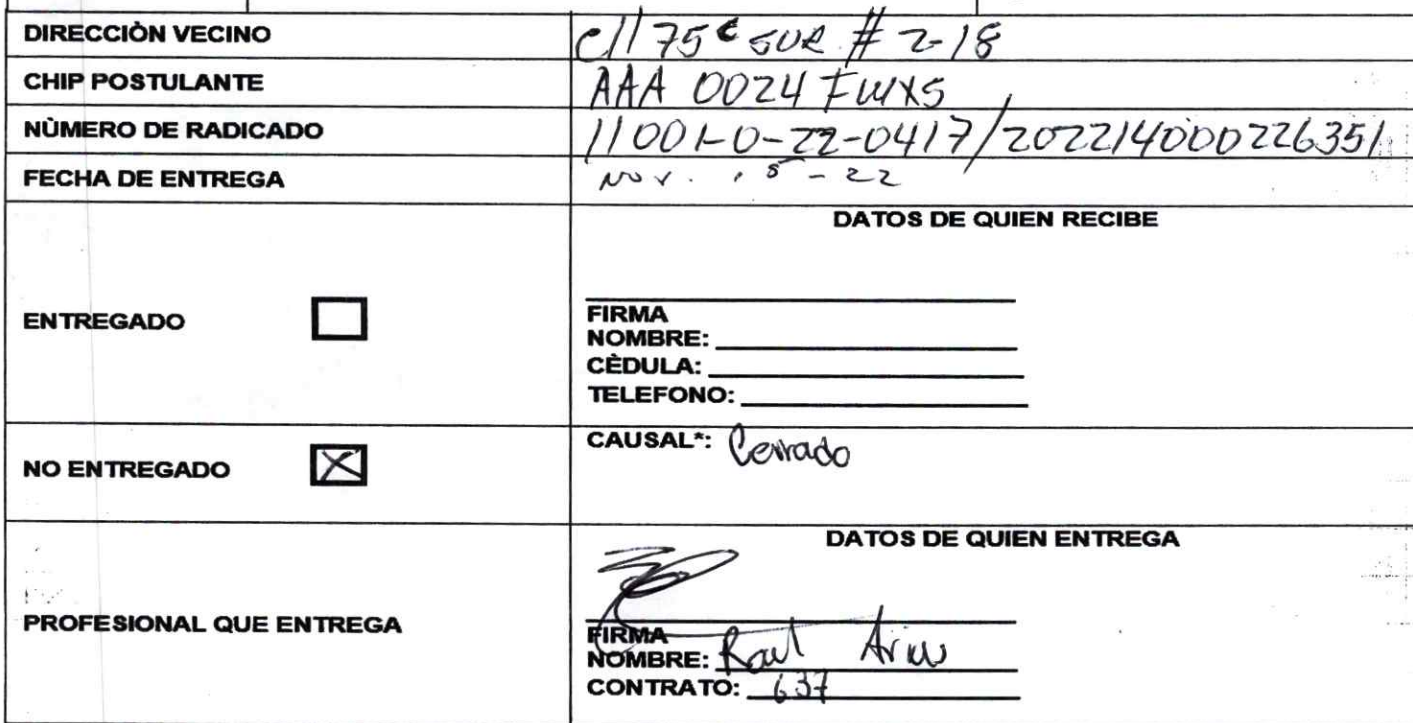 DIRECCIÒN VECINO cll 75 c SUR # 2-18
CHIP POSTULANTE AAA 0024 FWXS
NÙMERO DE RADICADO 11001-0-22-0417/202214000226351
FECHA DE ENTREGA Nov. 15-22
DATOS DE QUIEN RECIBE
ENTREGADO
FIRMA
NOMBRE:
CÈDULA:
TELEFONO:
NO ENTREGADO
CAUSAL*: Cerrado
DATOS DE QUIEN ENTREGA
PROFESIONAL QUE ENTREGA
FIRMA
NOMBRE: Raul
CONTRATO: 637